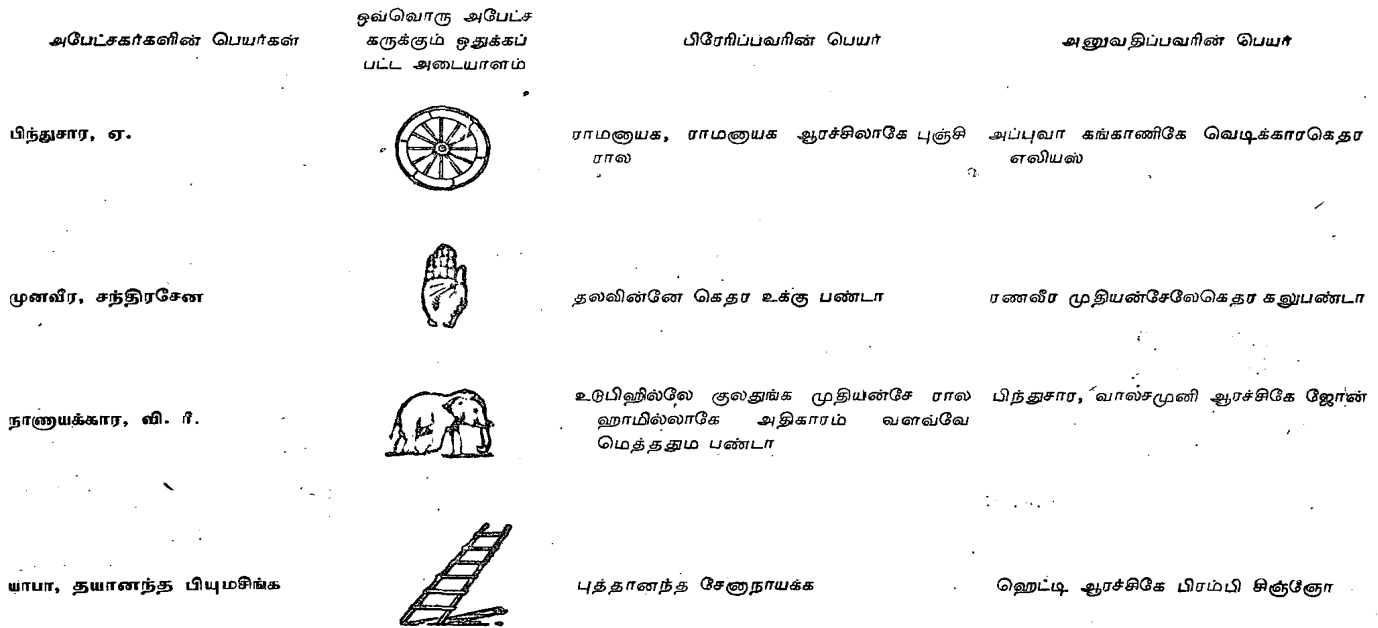 அபேட்சகர்களின் பெயர்கள்
ஒவ்வொரு அபேட்ச
கருக்கும் ஒதுக்கப்
பட்ட அடையாளம்
பிரேரிப்பவரின் பெயர்
அனுவதிப்பவரின் பெயர்
பிந்துசார, ஏ.
ராமனாயக, ராமனாயக ஆரச்சிலாகே புஞ்சி
ரால
அப்புவா கங்காணிகே வெடிக்காரகெதர
எலியஸ்
முனவீர, சந்திரசேன
தலவின்னே கெதர உக்கு பண்டா
ரணவீர முதியன்சேலேகெதர கலுபண்டா
நாணயக்கார, வி. ரீ.
உடுபிஹில்லே குலதுங்க முதியன்சே ரால
ஹாமில்லாகே அதிகாரம் வளவ்வே
மெத்ததும பண்டா
பிந்துசார, வால்சமுனி ஆரச்சிகே ஜோன்
யாபா, தயானந்த பியுமசிங்க
புத்தானந்த சேனாநாயக்க
ஹெட்டி ஆரச்சிகே பிரம்பி சிஞ்ஞோ